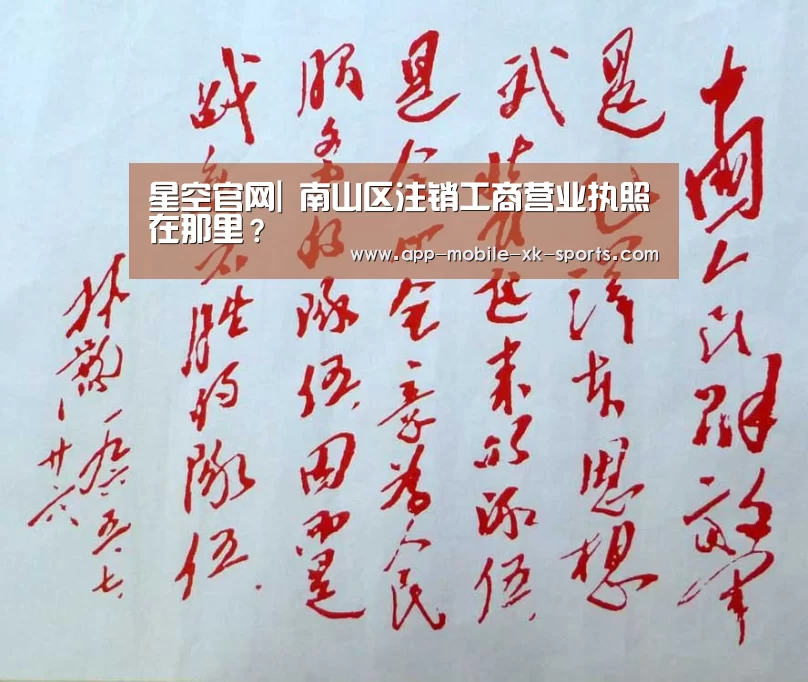 星空官网| 南山区注销工商营业执照
在那里？
www.app-mobile-xk-sports.com
中國人民解放軍
是毛澤东思想
武装起来的隊伍,
是全心全意為人民
服务的隊伍,因而是
战无不胜的隊伍.
林彪
一九六五.七.
廿六